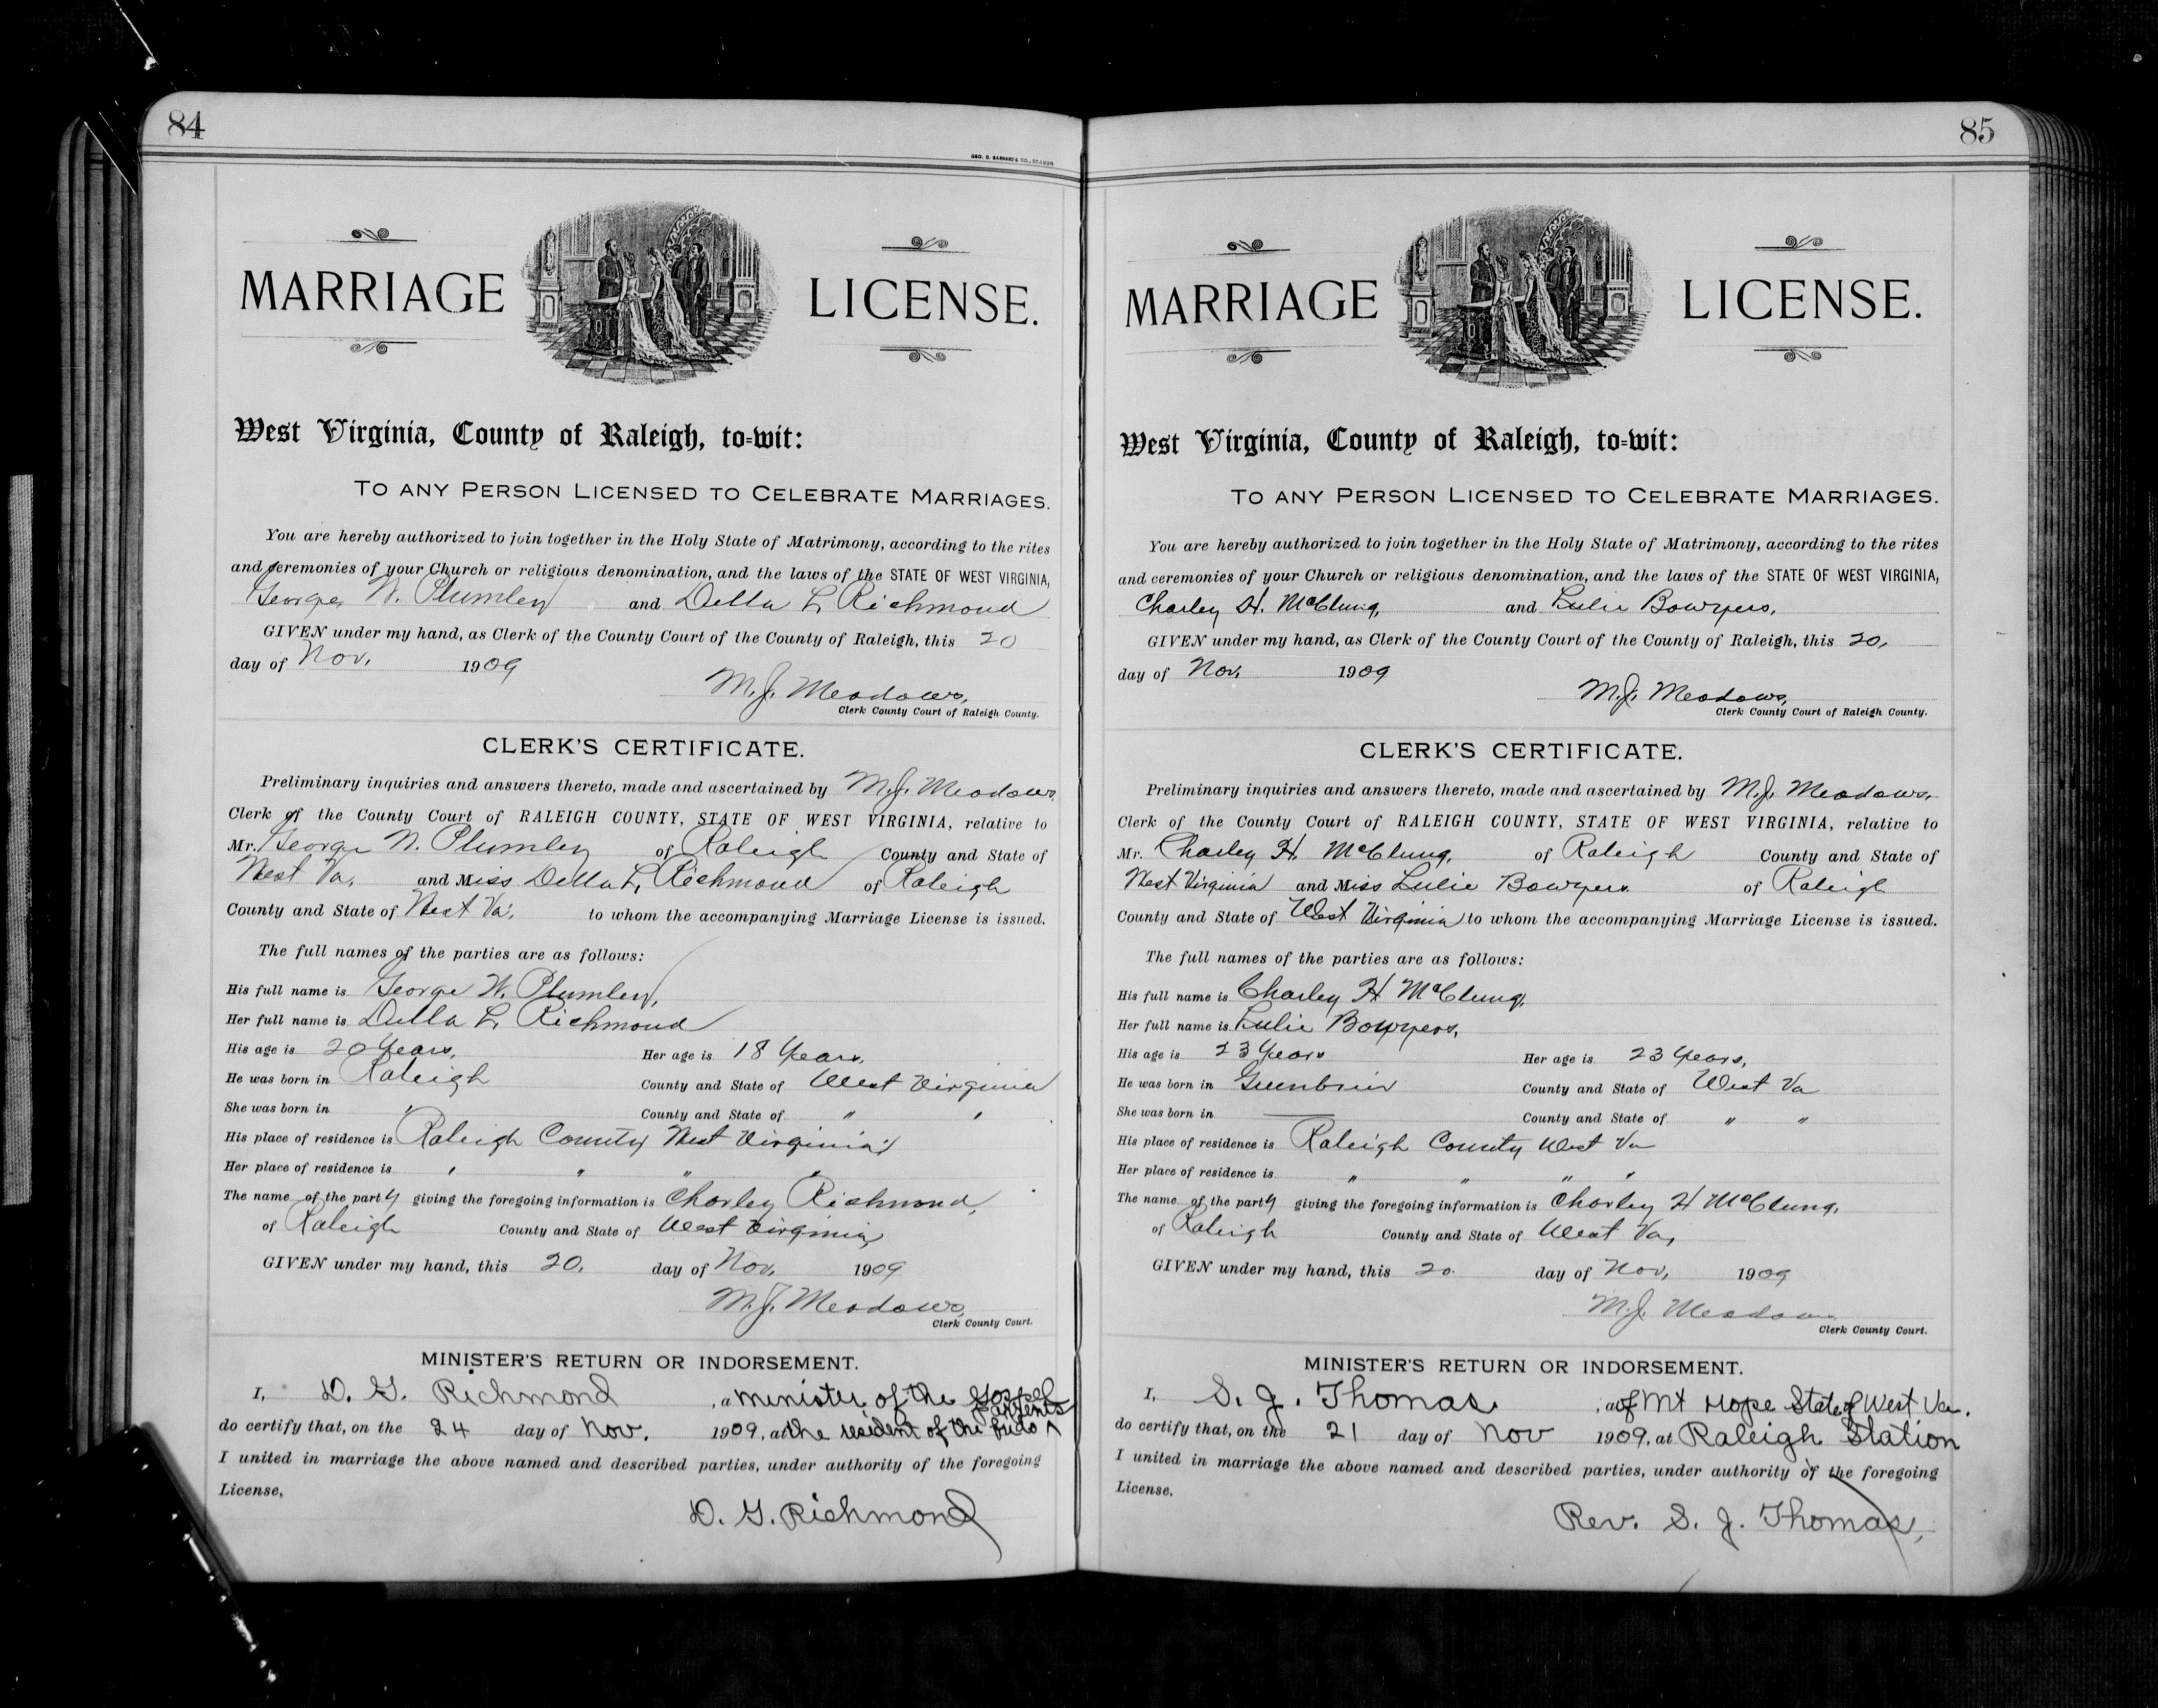 84
GEO. D. BARNARD & CO., ST. LOUIS
MARRIAGE LICENSE.
West Virginia, County of Raleigh, to-wit:
TO ANY PERSON LICENSED TO CELEBRATE MARRIAGES.
You are hereby authorized to join together in the Holy State of Matrimony, according to the rites
and ceremonies of your Church or religious denomination, and the laws of the STATE OF WEST VIRGINIA,
George W. Plumley and Della L. Richmond
GIVEN under my hand, as Clerk of the County Court of the County of Raleigh, this 20
day of Nov. 1909
M. J. Meadows,
Clerk County Court of Raleigh County.
CLERK'S CERTIFICATE.
Preliminary inquiries and answers thereto, made and ascertained by M. J. Meadows
Clerk of the County Court of RALEIGH COUNTY, STATE OF WEST VIRGINIA, relative to
Mr. George W. Plumley of Raleigh County and State of
West Va. and Miss Della L. Richmond of Raleigh
County and State of West Va. to whom the accompanying Marriage License is issued.
The full names of the parties are as follows:
His full name is George W. Plumley,
Her full name is Della L. Richmond
His age is 20 Years, Her age is 18 Years,
He was born in Raleigh County and State of West Virginia
She was born in " County and State of " "
His place of residence is Raleigh County West Virginia
Her place of residence is " " " "
The name of the party giving the foregoing information is Charley Richmond,
of Raleigh County and State of West Virginia
GIVEN under my hand, this 20. day of Nov. 1909
M. J. Meadows,
Clerk County Court.
MINISTER'S RETURN OR INDORSEMENT.
I, D. G. Richmond, a minister of the Gospel
parents
do certify that, on the 24 day of Nov. 1909, at the resident of the brids ^
I united in marriage the above named and described parties, under authority of the foregoing
License.
D. G. Richmond
85
MARRIAGE LICENSE.
West Virginia, County of Raleigh, to-wit:
TO ANY PERSON LICENSED TO CELEBRATE MARRIAGES.
You are hereby authorized to join together in the Holy State of Matrimony, according to the rites
and ceremonies of your Church or religious denomination, and the laws of the STATE OF WEST VIRGINIA,
Charley H. McClung, and Lulie Bowyers,
GIVEN under my hand, as Clerk of the County Court of the County of Raleigh, this 20,
day of Nov. 1909
M. J. Meadows,
Clerk County Court of Raleigh County.
CLERK'S CERTIFICATE.
Preliminary inquiries and answers thereto, made and ascertained by M. J. Meadows,
Clerk of the County Court of RALEIGH COUNTY, STATE OF WEST VIRGINIA, relative to
Mr. Charley H. McClung, of Raleigh County and State of
West Virginia and Miss Lulie Bowyers of Raleigh
County and State of West Virginia to whom the accompanying Marriage License is issued.
The full names of the parties are as follows:
His full name is Charley H McClung,
Her full name is Lulie Bowyers,
His age is 23 Years Her age is 23 Years,
He was born in Greenbrier County and State of West Va
She was born in — County and State of " "
His place of residence is Raleigh County West Va
Her place of residence is " " " "
The name of the party giving the foregoing information is Charley H McClung,
of Raleigh County and State of West Va,
GIVEN under my hand, this 20. day of Nov, 1909
M. J. Meadows
Clerk County Court.
MINISTER'S RETURN OR INDORSEMENT.
I, S. J. Thomas, a of Mt Hope State of West Va.
do certify that, on the 21 day of Nov 1909, at Raleigh Station
I united in marriage the above named and described parties, under authority of the foregoing
License.
Rev. S. J. Thomas,